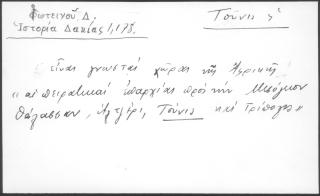 Φωτεινοῦ Δ,
Ἱστορία Δακίας 1,178.
Τούνις ἡ
εἶναι γνωσταί χῶραι τῆς Ἀφρικῆς
"αἱ πειρατικαί ἐπαρχίαι πρός τήν Μεσόγειον
θάλασσαν, Ἀλτζέρι, Τούνις καί Τρίπολις"